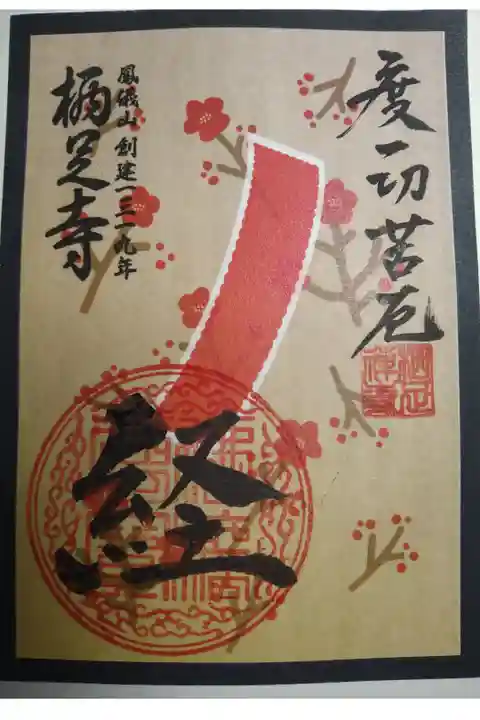 度一切苦厄
経
鳳儀山 創建一三一九年
栖足寺